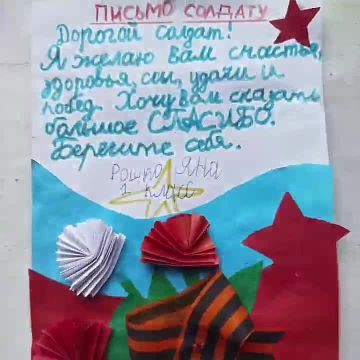 ПИСЬМО СОЛДАТУ
Дорогой солдат!
Я желаю Вам счастья,
здоровья, сил, удачи и
побед. Хочу Вам сказать
большое СПАСИБО.
Берегите себя.
Рошко ЯНА
1 класс